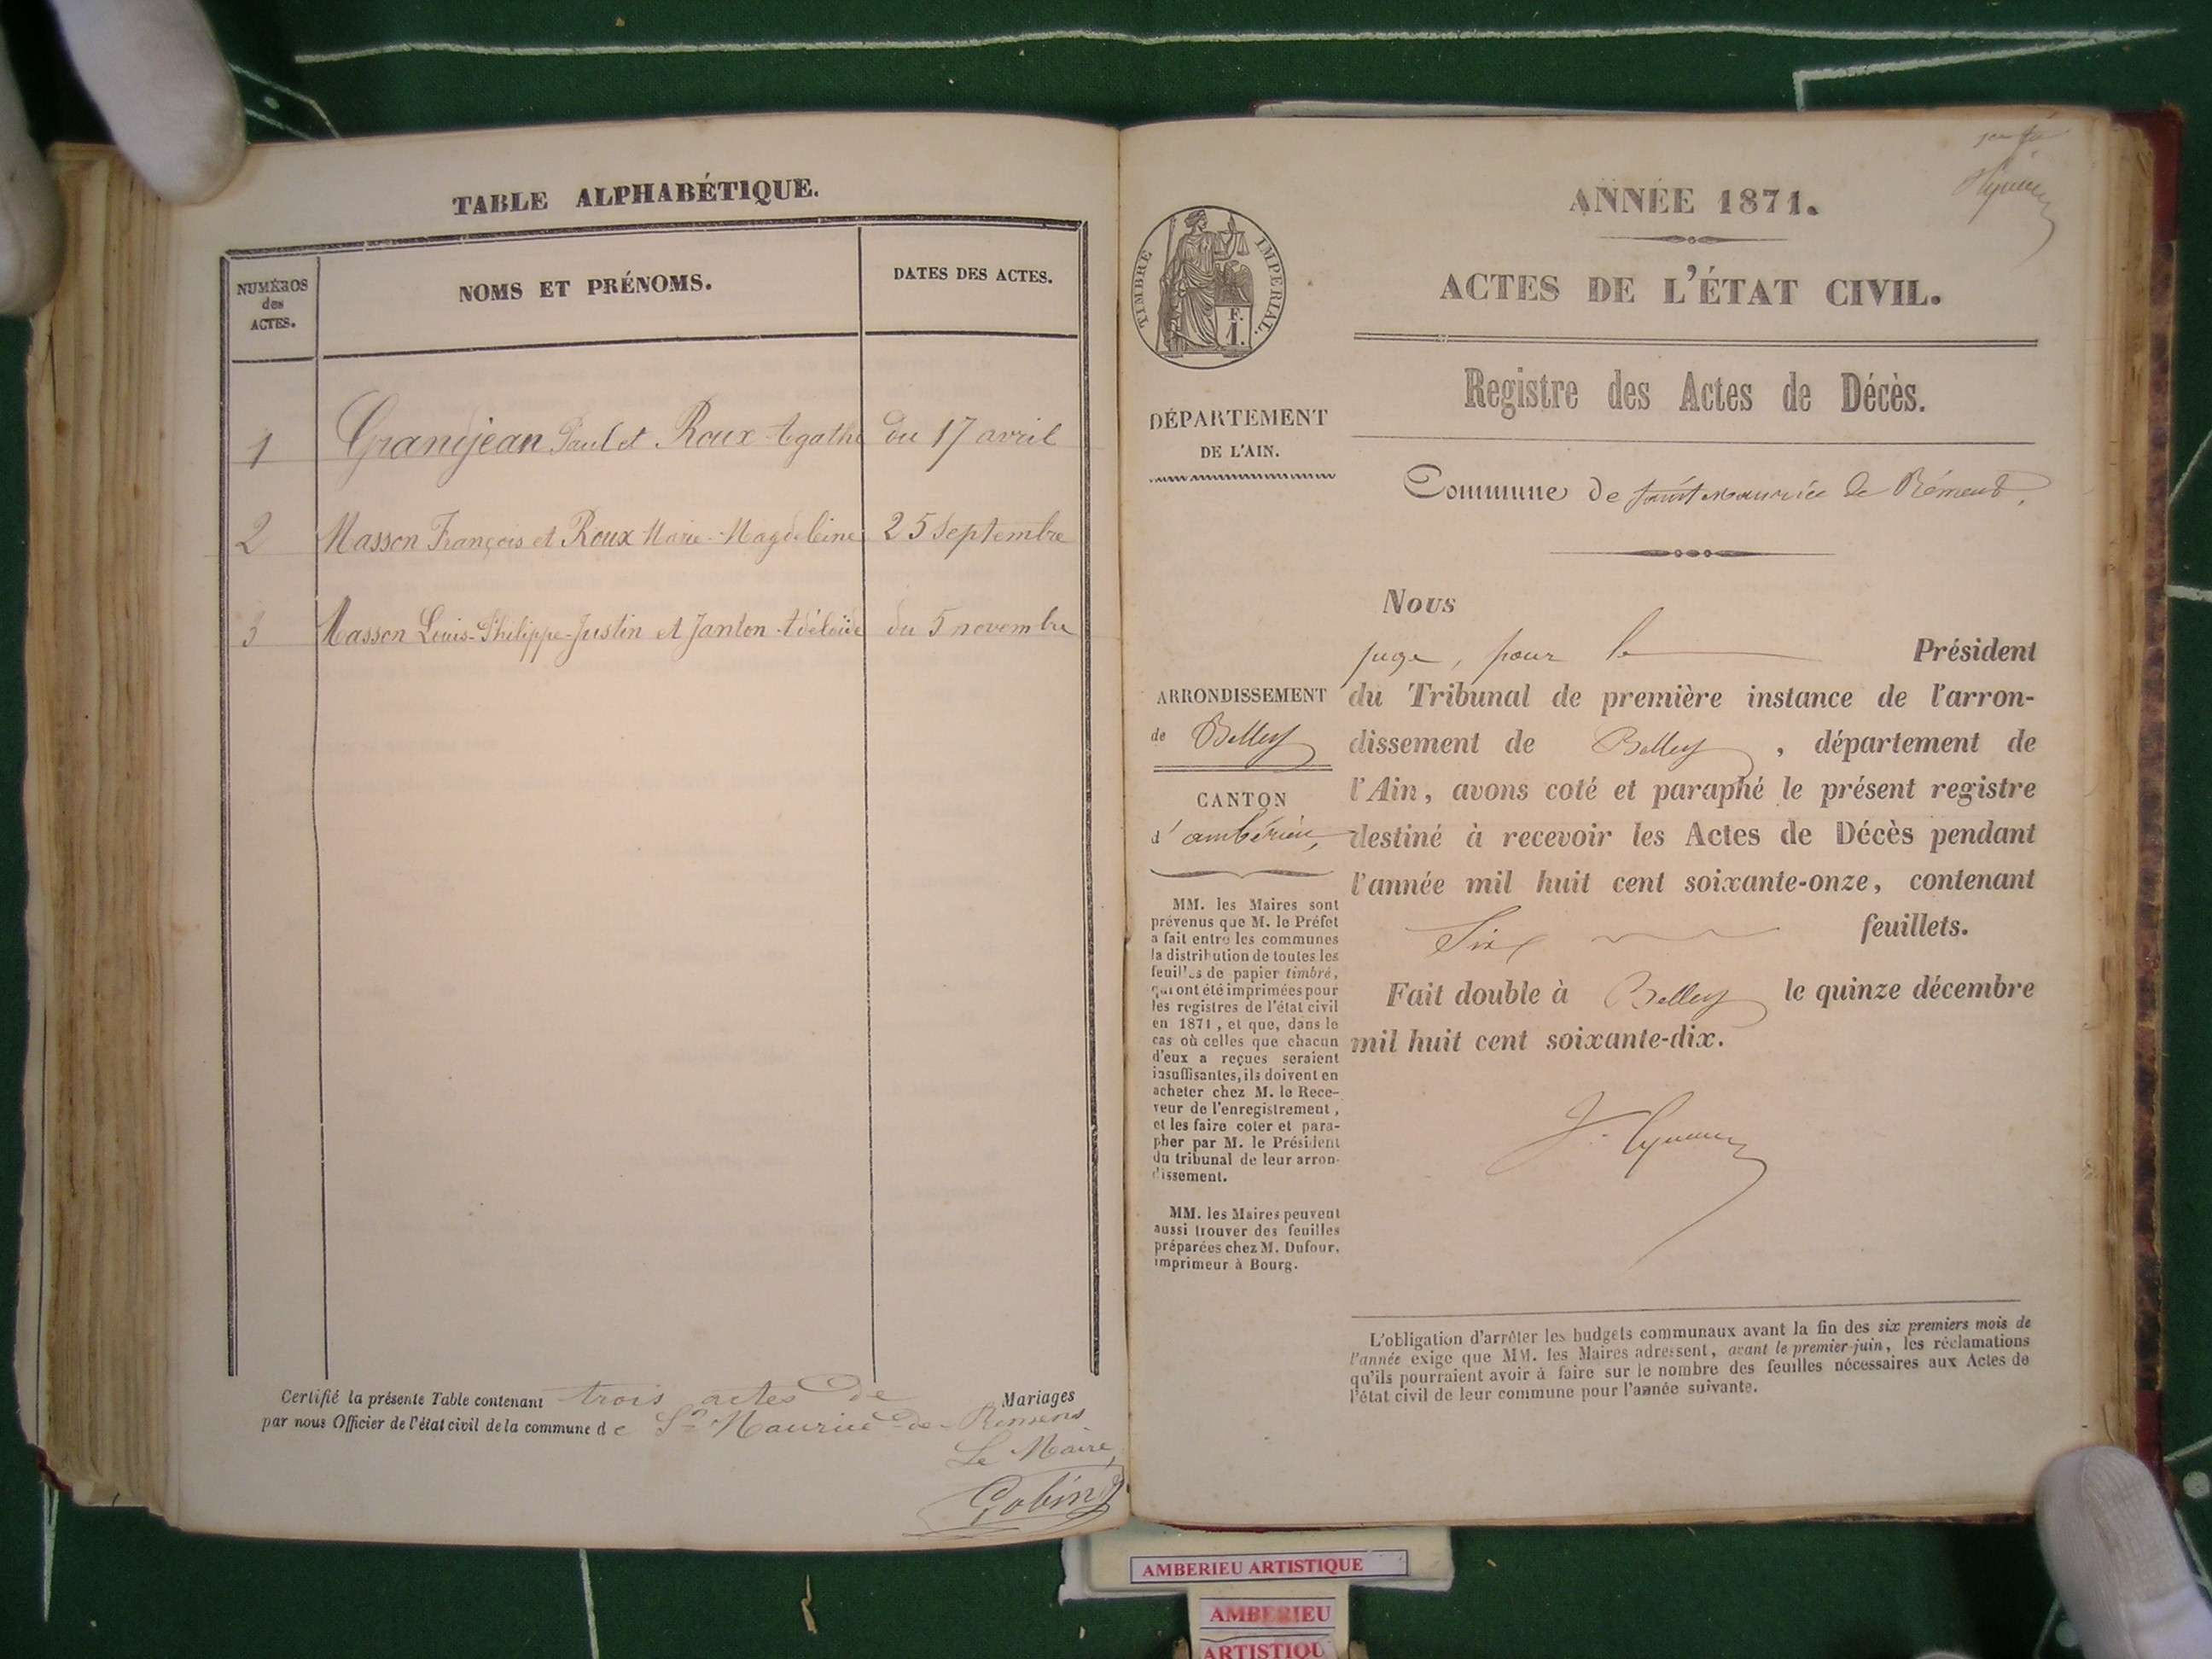 TABLE ALPHABÉTIQUE.
NUMÉROS des ACTES.
NOMS ET PRÉNOMS.
DATES DES ACTES.
1 Grandjean Paul et Roux Agathe du 17 avril
2 Masson François et Roux Marie-Magdeleine 25 Septembre
3 Masson Louis-Philippe-Justin et Janton Adélaïde du 5 novembre
Certifié la présente Table contenant trois actes de Mariages
par nous Officier de l'état civil de la commune de St Maurice-de-Remens
Le Maire,
Gobin
TIMBRE IMPERIAL.
F.
1.
DÉPARTEMENT
DE L'AIN.
ARRONDISSEMENT
de Belley
CANTON
d'ambérieu,
MM. les Maires sont
prévenus que M. le Préfet
a fait entre les communes
la distribution de toutes les
feuilles de papier timbré,
qui ont été imprimées pour
les registres de l'état civil
en 1871, et que, dans le
cas où celles que chacun
d'eux a reçues seraient
insuffisantes, ils doivent en
acheter chez M. le Rece-
veur de l'enregistrement,
et les faire coter et para-
pher par M. le Président
du tribunal de leur arron-
dissement.
MM. les Maires peuvent
aussi trouver des feuilles
préparées chez M. Dufour,
imprimeur à Bourg.
ANNÉE 1871.
ACTES DE L'ÉTAT CIVIL.
Registre des Actes de Décès.
Commune de saint maurice de Rémens.
Nous
juge, pour le Président
du Tribunal de première instance de l'arron-
dissement de Belley, département de
l'Ain, avons coté et paraphé le présent registre
destiné à recevoir les Actes de Décès pendant
l'année mil huit cent soixante-onze, contenant
Six feuillets.
Fait double à Belley le quinze décembre
mil huit cent soixante-dix.
L'obligation d'arrêter les budgets communaux avant la fin des six premiers mois de
l'année exige que MM. les Maires adressent, avant le premier juin, les réclamations
qu'ils pourraient avoir à faire sur le nombre des feuilles nécessaires aux Actes de
l'état civil de leur commune pour l'année suivante.
AMBERIEU ARTISTIQUE
AMBERIEU
ARTISTIQU